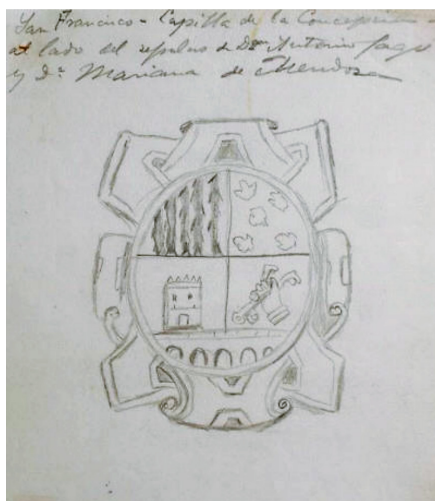 San Francisco - Capilla de la Concepción -
al lado del sepulcro de Don Antonio Lago
y Dª Mariana de Mendoza